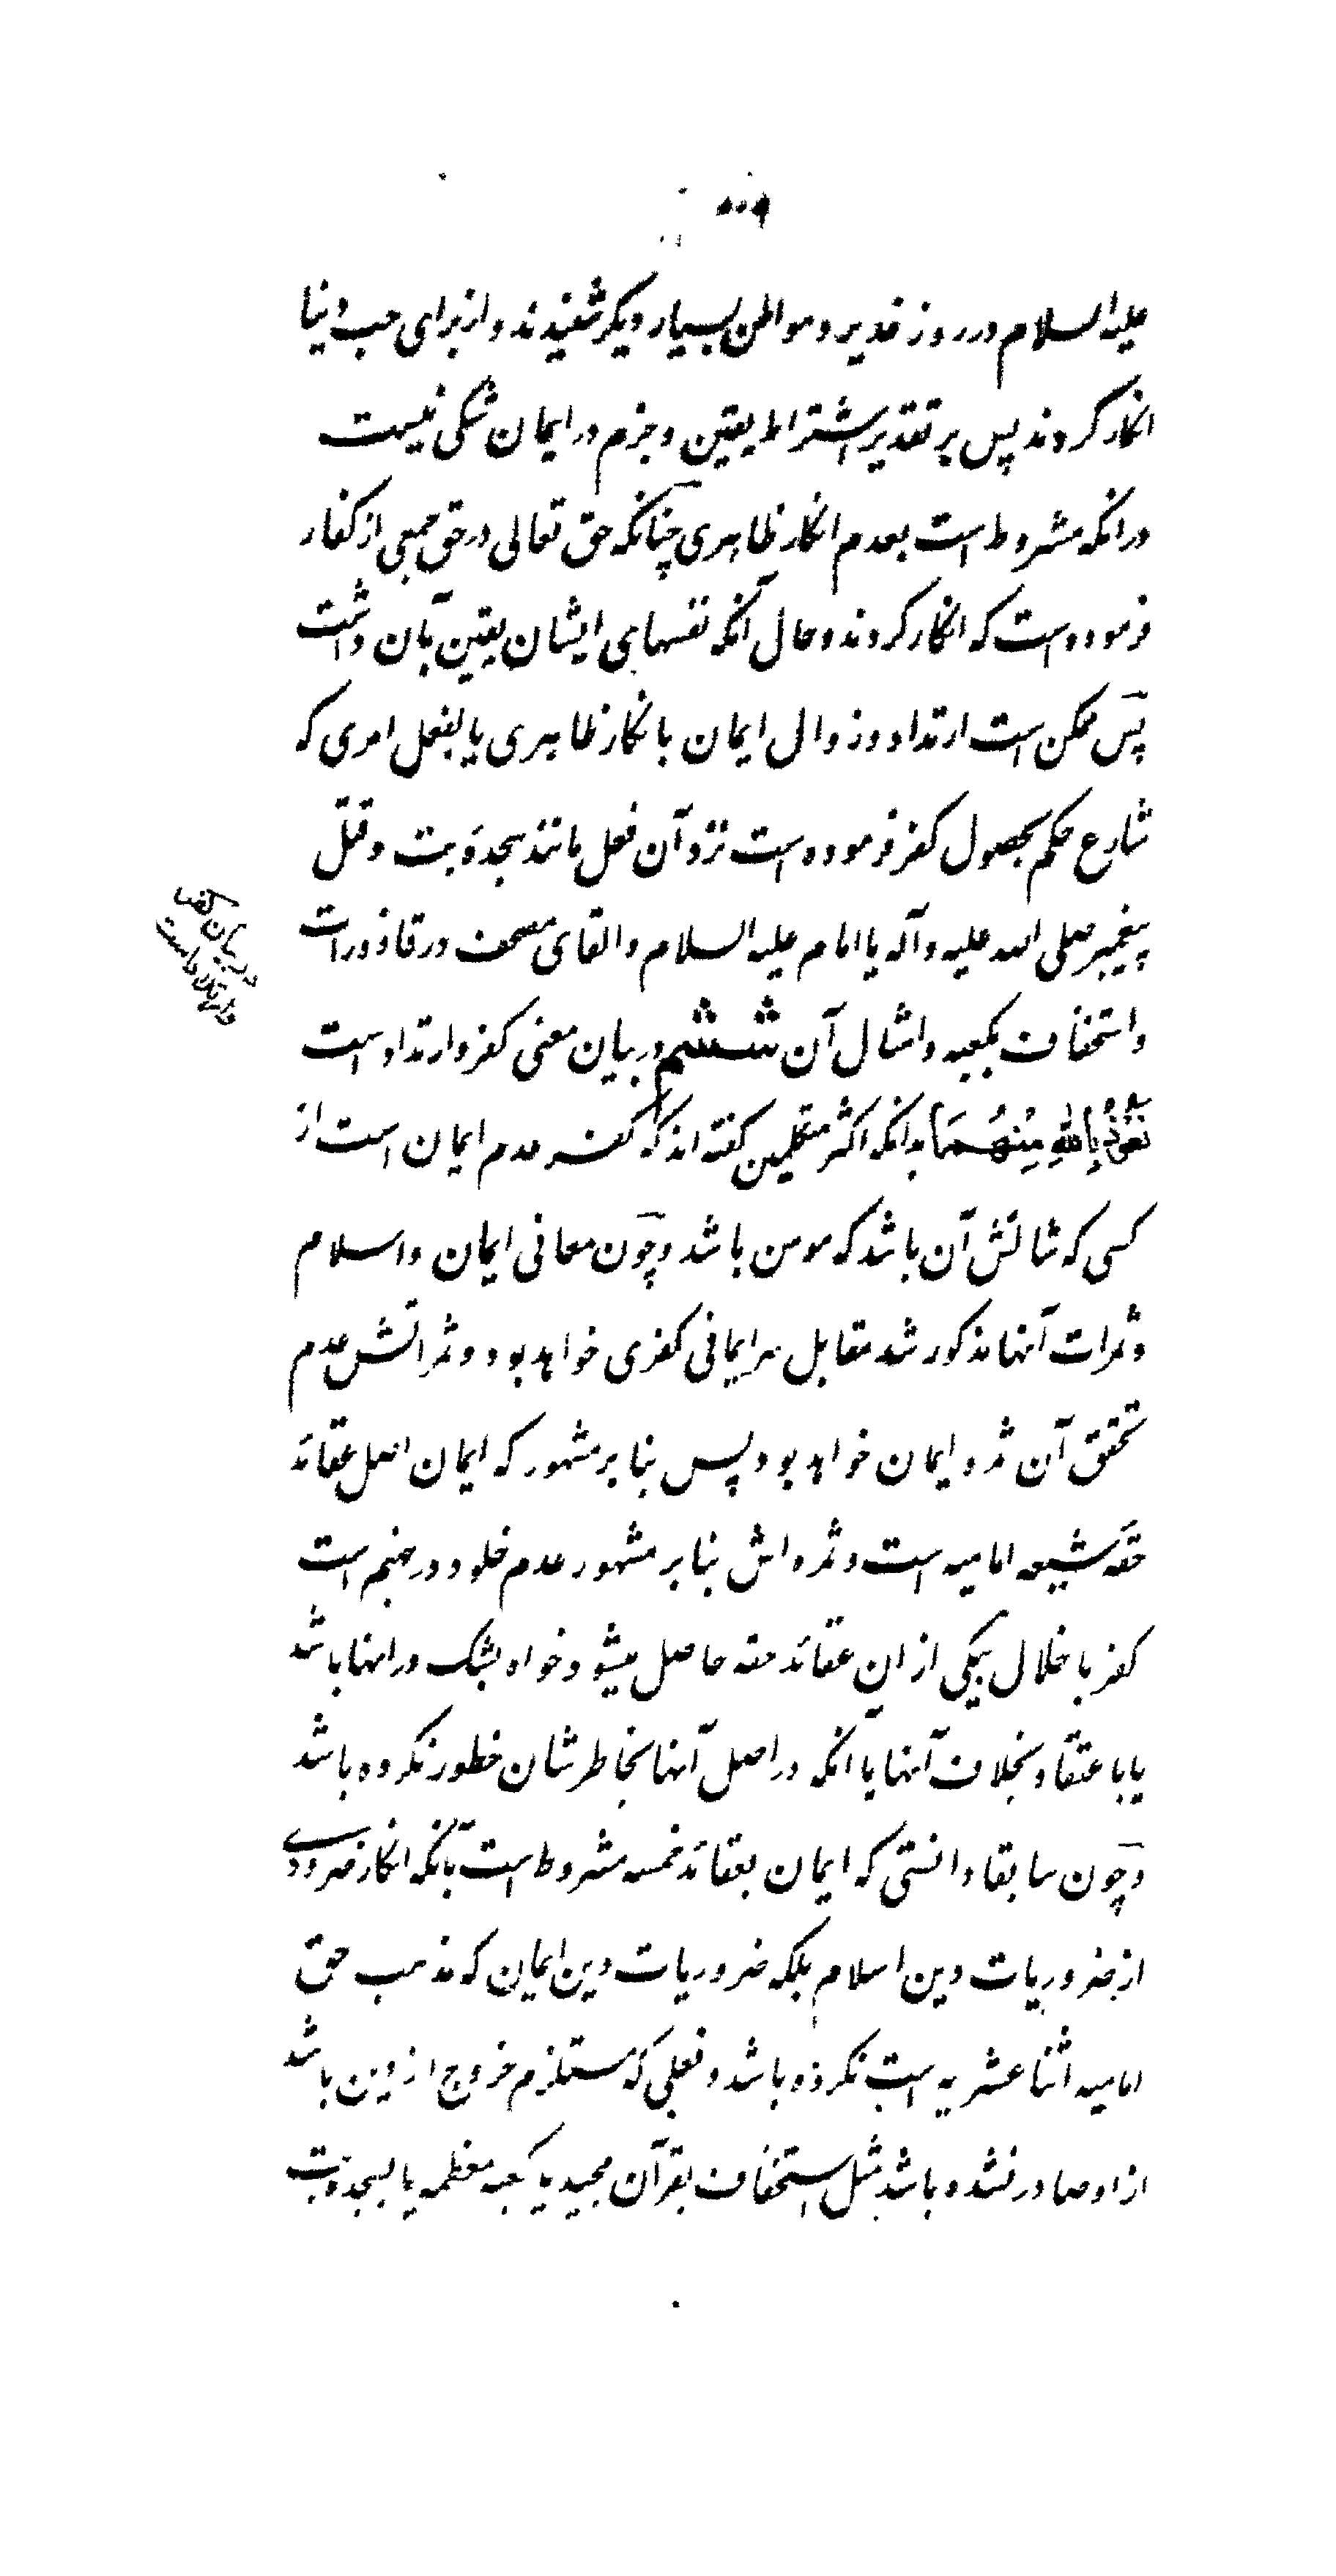 علیه السلام در روز غدیر و مواطن بسیار دیگر شنیدند و از برای حب دنیا
انکار کردند پس بر تقدیر اشتراط یقین و جزم در ایمان شکی نیست
در انکه مشروط است بعدم انکار ظاهری چنانکه حق تعالی در حق جمعی از کفار
فرموده است که انکار کردند و حال آنکه نفسهای ایشان یقین بآن داشت
پس ممکن است ارتداد و زوال ایمان بانکار ظاهری یا بفعل امری که
شارع حکم بحصول کفر فرموده است نزد آن فعل مانند سجدۀ بت و قتل
پیغمبر صلی الله علیه و آله یا امام علیه السلام و القای مصحف در قاذورات
و استخفاف بکعبه و امثال آن ششم در بیان معنی کفر و ارتداد است
نَعُوذُ بِاللهِ مِنْهُمَا بدانکه اکثر متکلمین گفته اند که کفر عدم ایمان است از
کسی که شانش آن باشد که مومن باشد و چون معانی ایمان و اسلام
و ثمرات آنها مذکور شد مقابل هر ایمانی کفری خواهد بود و ثمراتش عدم
تحقق آن ثمره ایمان خواهد بود پس بنا بر مشهور که ایمان اصل عقائد
حقه شیعه امامیه است و ثمره اش بنا بر مشهور عدم خلود در جهنم است
کفر باخلال بیکی از این عقائد حقه حاصل میشود خواه بشک در انها باشد
یا باعتقاد بخلاف آنها یا انکه در اصل آنها بخاطرشان خطور نکرده باشد
و چون سابقا دانستی که ایمان بعقائد خمسه مشروط است بآنکه انکار ضروری
از ضروریات دین اسلام بلکه ضروریات دین ایمان که مذهب حق
امامیه اثنا عشریه است نکرده باشد و فعلی که مستلزم خروج از دین باشد
از او صادر نشده باشد مثل استخفاف بقرآن مجید یا کعبه معظمه یا بسجده بت
در بیان کفر